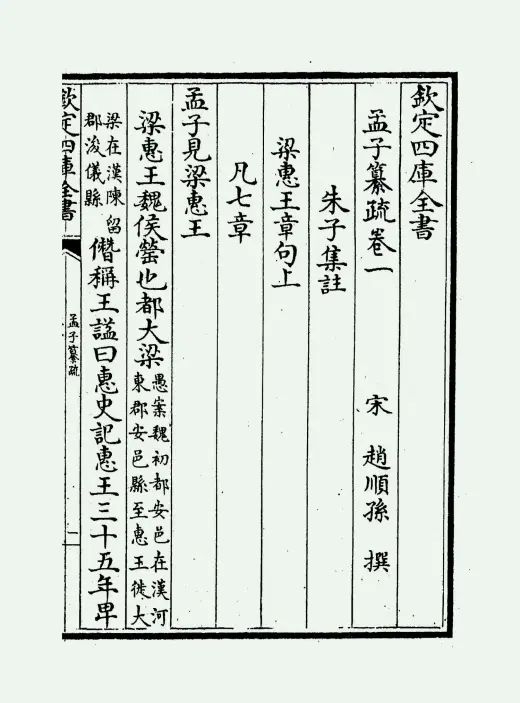 欽定四庫全書
孟子纂疏卷一
宋 趙順孫 撰
朱子集註
梁惠王章句上
凡七章
孟子見梁惠王
梁惠王魏侯罃也都大梁
愚案魏初都安邑在漢河
東郡安邑縣至惠王徙大
梁在漢陳留
郡浚儀縣
僭稱王諡曰惠史記惠王三十五年卑
欽定四庫全書
孟子纂疏
一